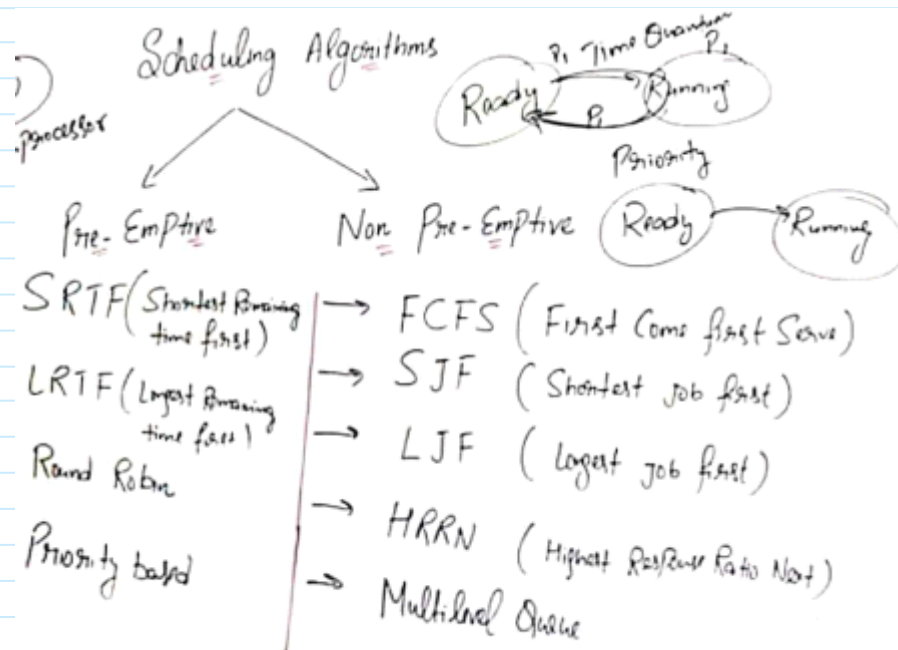 Scheduling Algorithms
P1 Time Quantum
P2
Ready
Running
P1
processor
Priority
Pre-Emptive
Non Pre-Emptive
Ready
Running
SRTF (Shortest Remaining
time first)
LRTF (Longest Remaining
time first)
Round Robin
Priority based
→ FCFS (First Come first Serve)
→ SJF (Shortest job first)
→ LJF (Longest job first)
→ HRRN (Highest Response Ratio Next)
→ Multilevel Queue